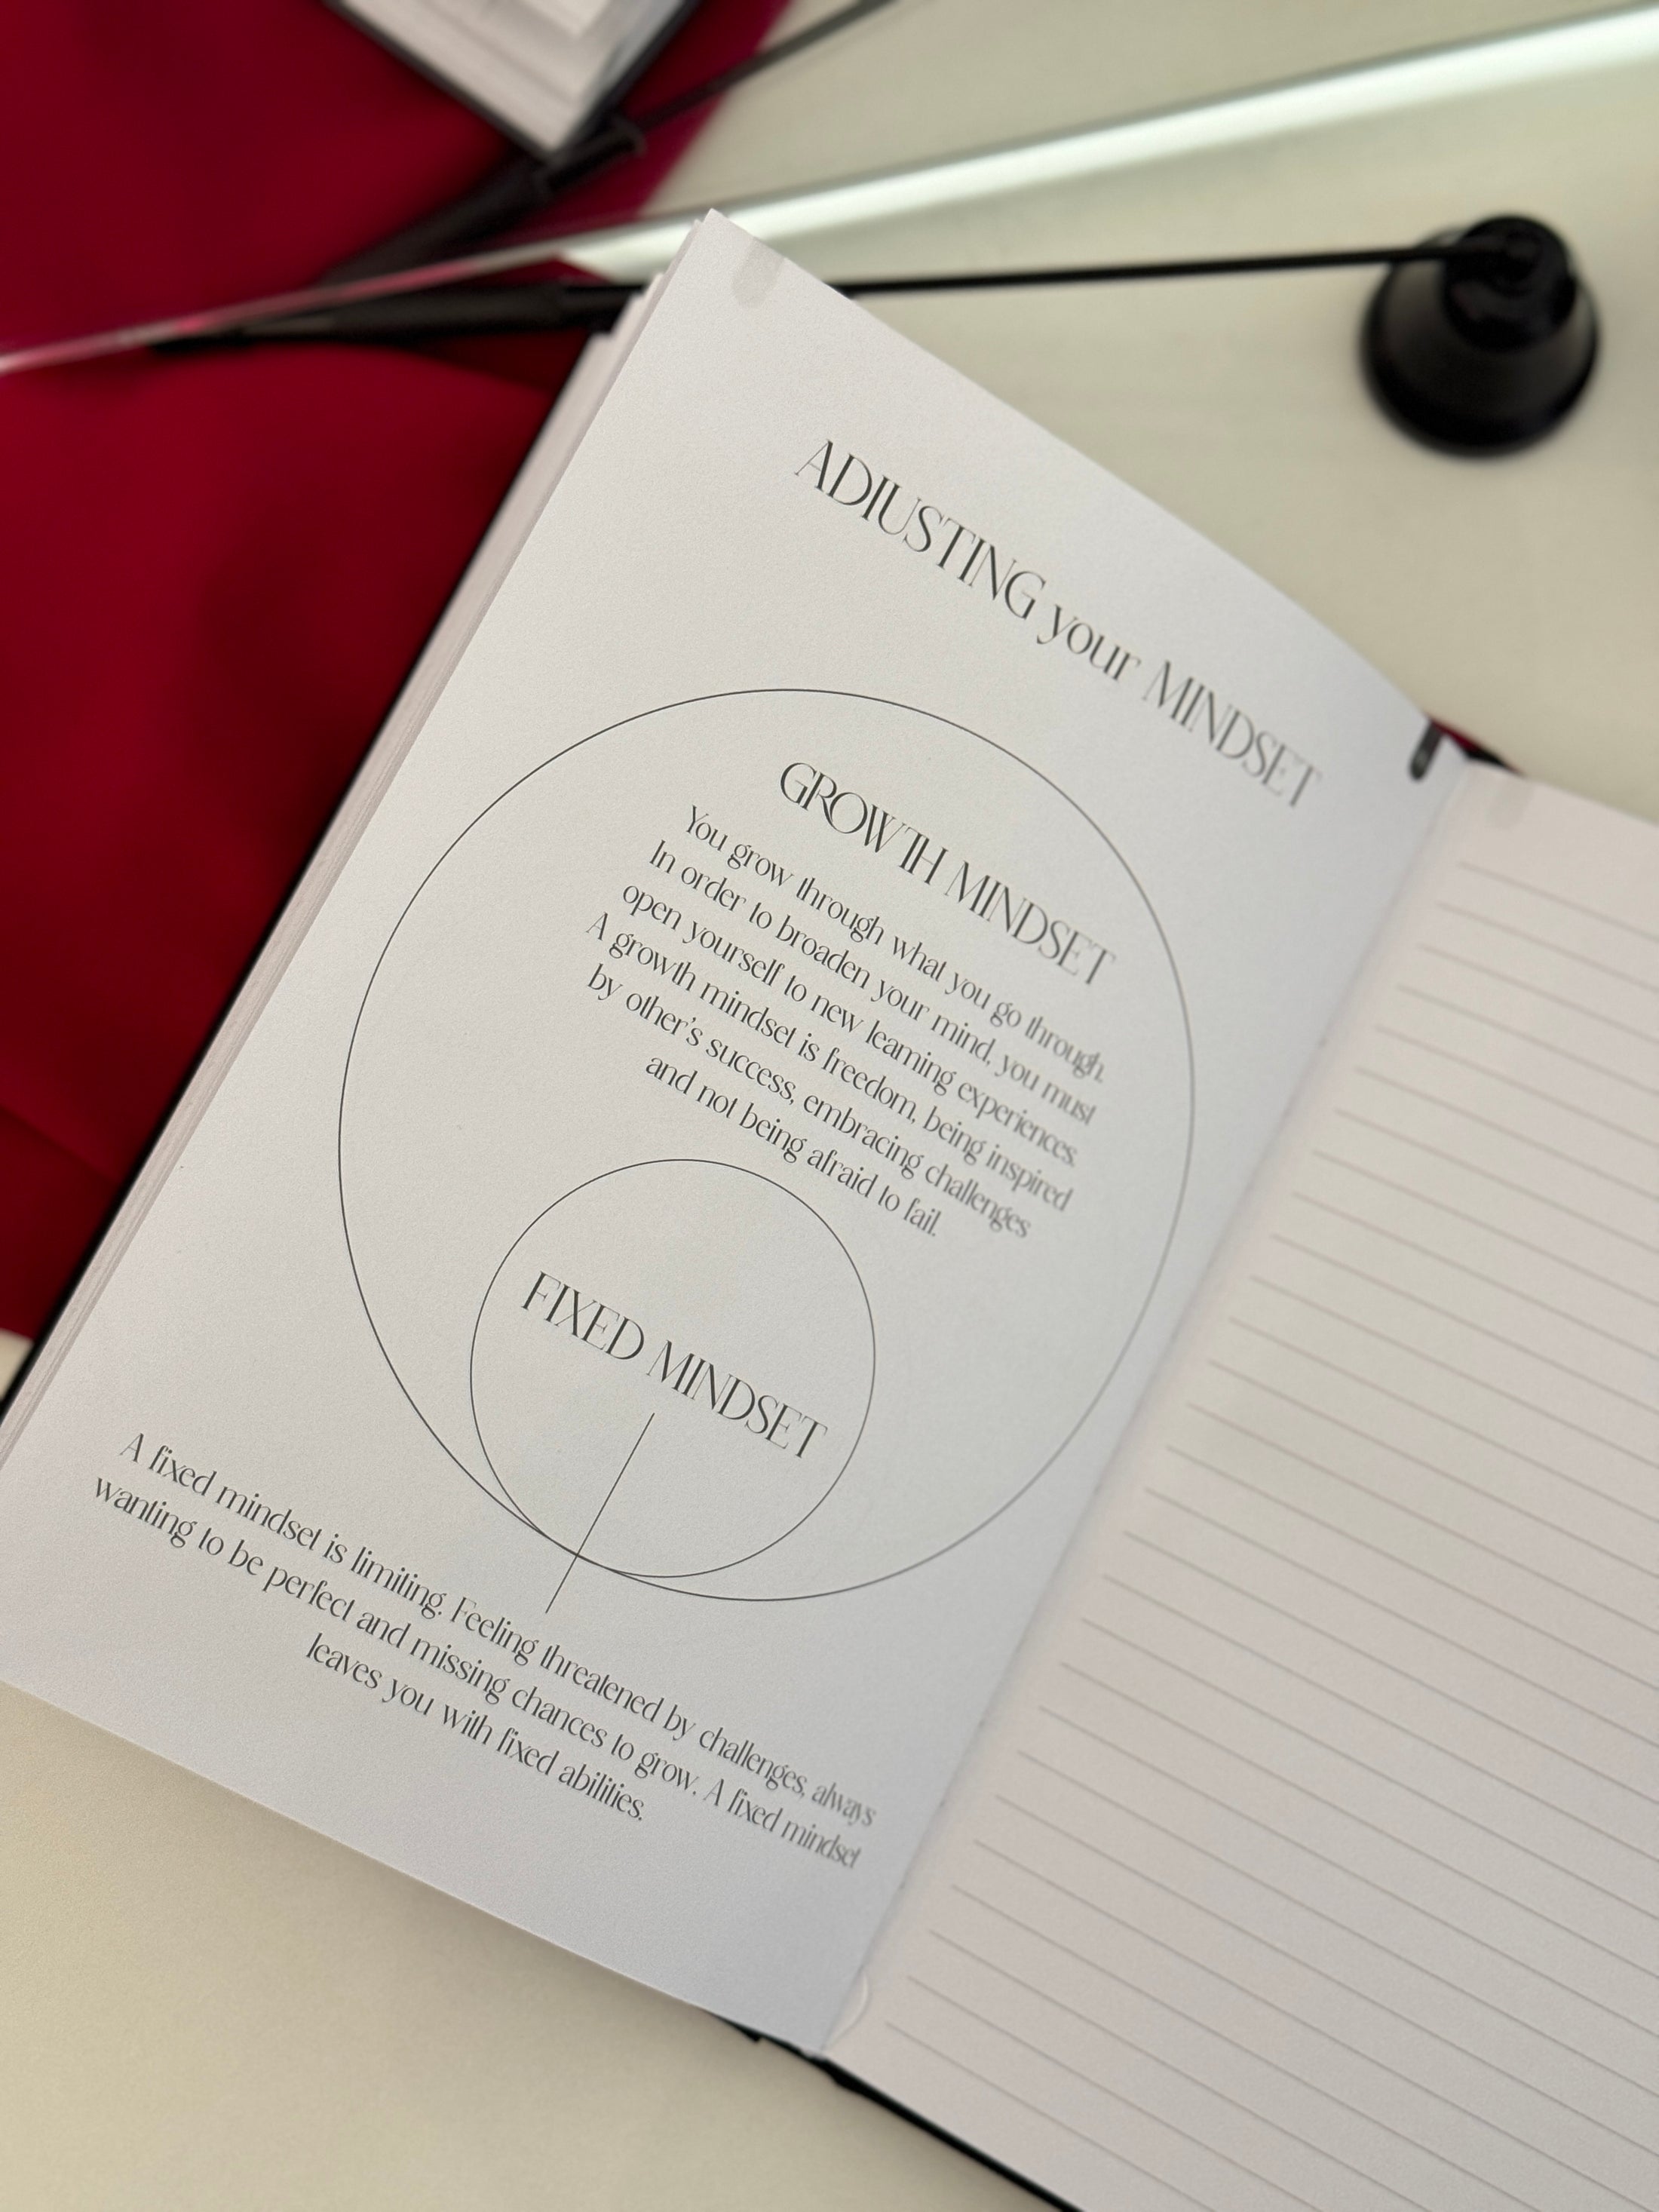 ADJUSTING your MINDSET
GROWTH MINDSET
You grow through what you go through.
In order to broaden your mind, you must
open yourself to new learning experiences.
A growth mindset is freedom, being inspired
by other's success, embracing challenges
and not being afraid to fail.
FIXED MINDSET
A fixed mindset is limiting. Feeling threatened by challenges, always
wanting to be perfect and missing chances to grow. A fixed mindset
leaves you with fixed abilities.